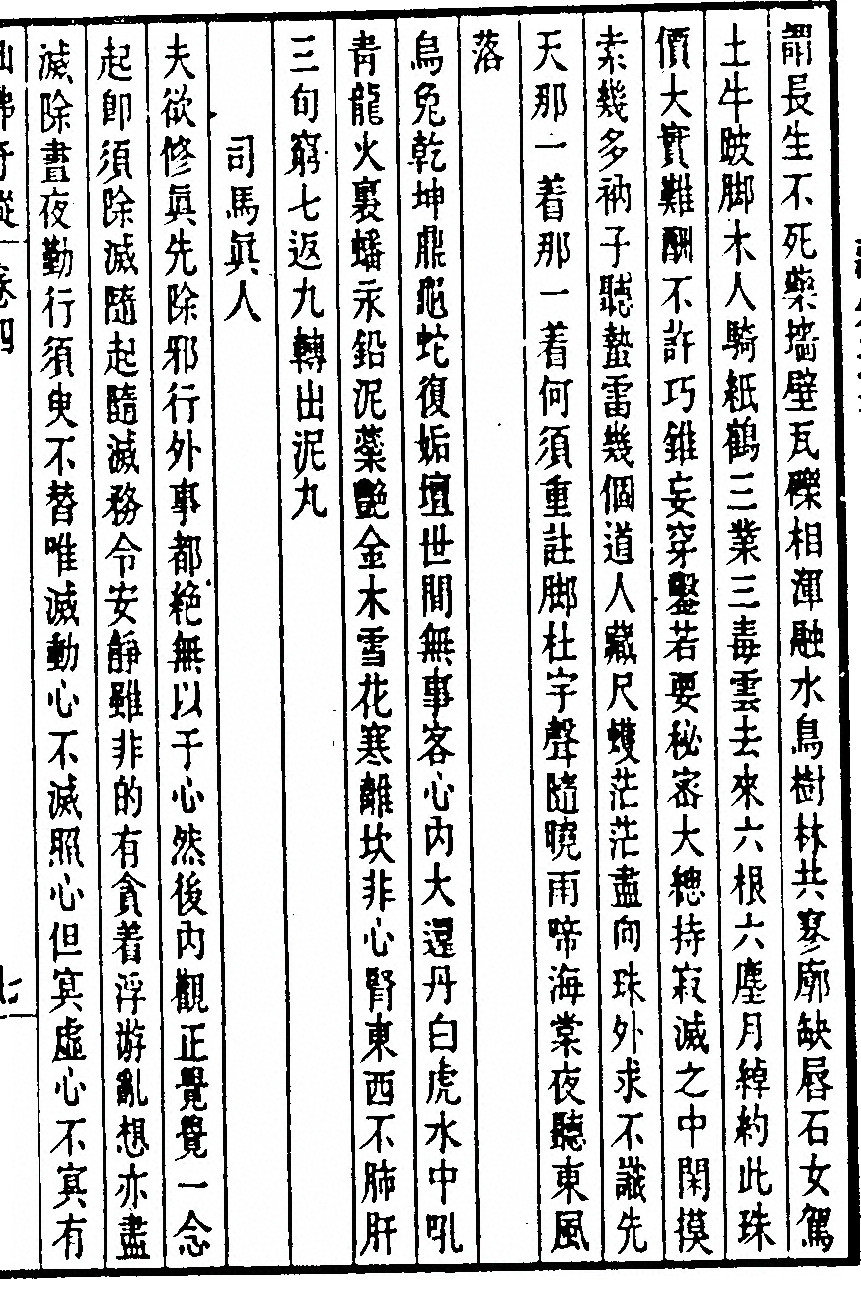 謂長生不死藥墻壁瓦礫相渾融水鳥樹林共寥廓缺唇石女駕
土牛跛脚木人騎紙鶴三業三毒雲去來六根六塵月綽約此珠
價大實難酬不許巧錐妄穿鑿若要秘密大總持寂滅之中閑摸
索幾多衲子聽蟄雷幾個道人藏尺蠖茫茫盡向珠外求不識先
天那一着那一着何須重註脚杜宇聲隨曉雨啼海棠夜聽東風
落
烏兔乾坤鼎龜蛇復姤壇世間無事客心內大還丹白虎水中吼
青龍火裏蟠汞鉛泥蘂艷金木雪花寒離坎非心腎東西不肺肝
三旬窮七返九轉出泥丸
司馬眞人
夫欲修眞先除邪行外事都絶無以于心然後內觀正覺覺一念
起卽須除滅隨起隨滅務令安靜雖非的有貪着浮遊亂想亦盡
滅除晝夜勤行須臾不替唯滅動心不滅照心但冥虛心不冥有
仙佛奇蹤 卷四 七